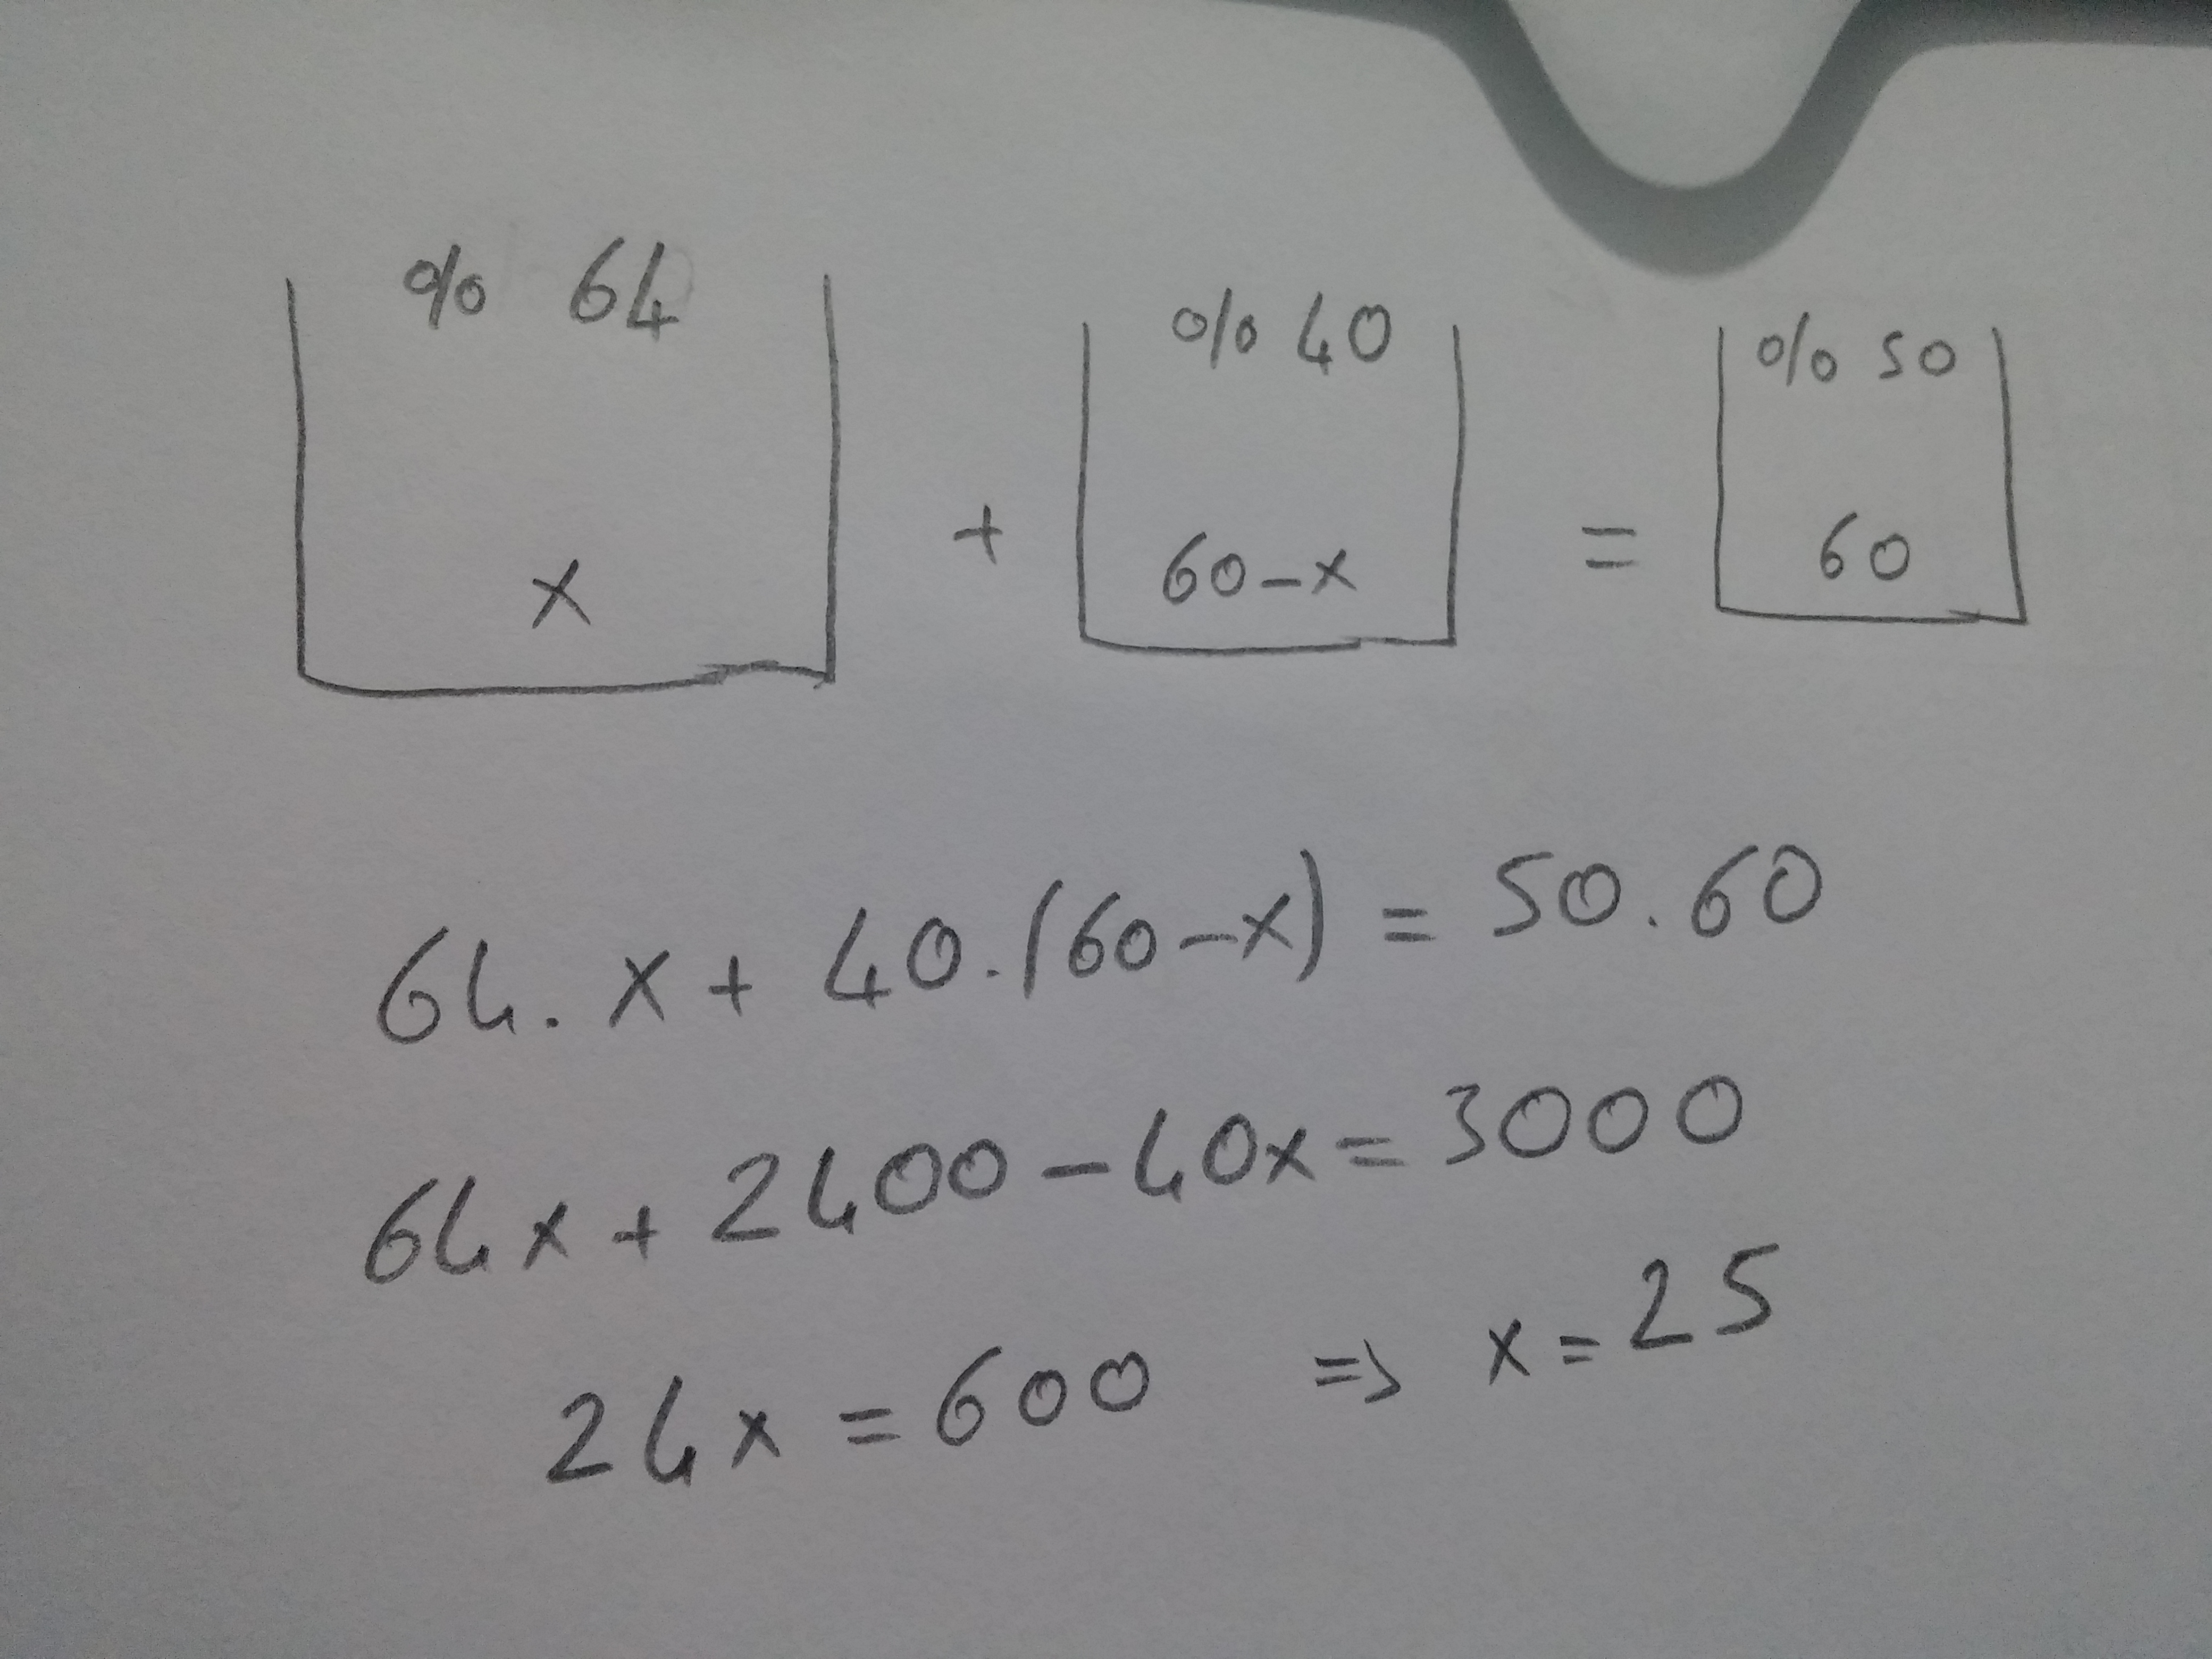 % 64
% 40
% 50
x + 60-x = 60
64. x + 40.(60-x) = 50.60
64x + 2400 - 40x = 3000
24x = 600 => x = 25